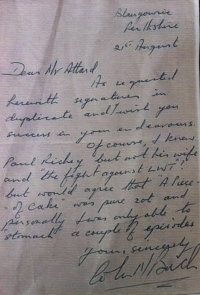 Blairgowrie
Perthshire
21st August
Dear Mr Attard
As requested
herewith signatures in
duplicate and I wish you
success in your endeavours.
Of course, I knew
Paul Richey but not his wife
and the fight against LWT.
but would agree that 'A Piece
of Cake' was pure rot and
personally I was only able to
stomach a couple of episodes
Yours sincerely